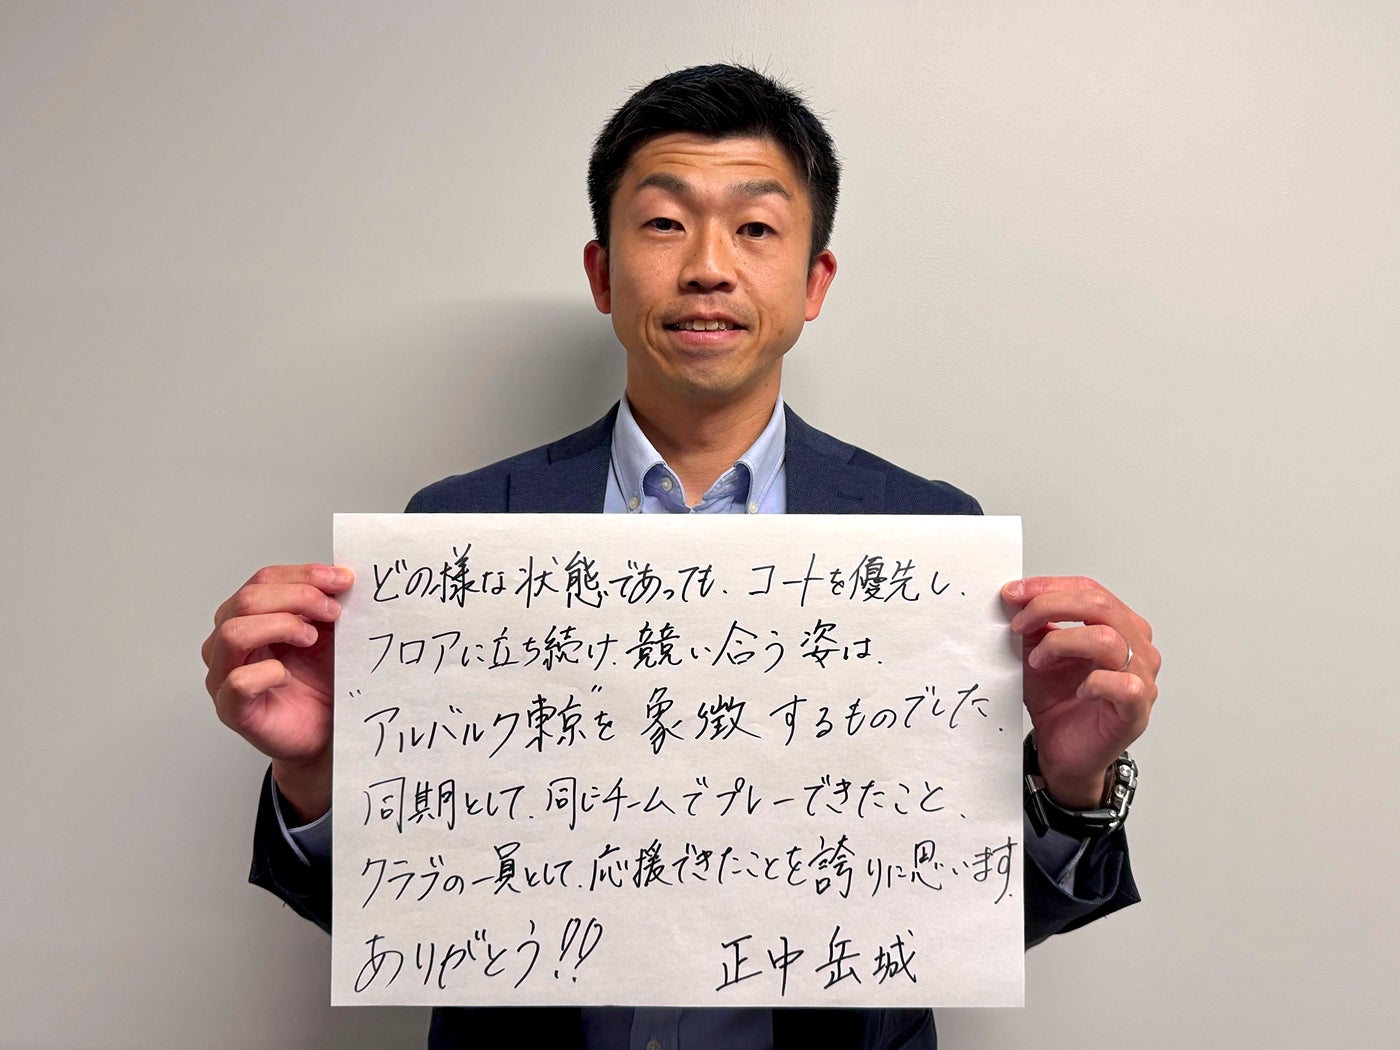 どの様な状態であっても、コートを優先し、
フロアに立ち続け、競い合う姿は、
"アルバルク東京"を象徴するものでした。
同期として、同じチームでプレーできたこと、
クラブの一員として、応援できたことを誇りに思います。
ありがとう!! 正中岳城